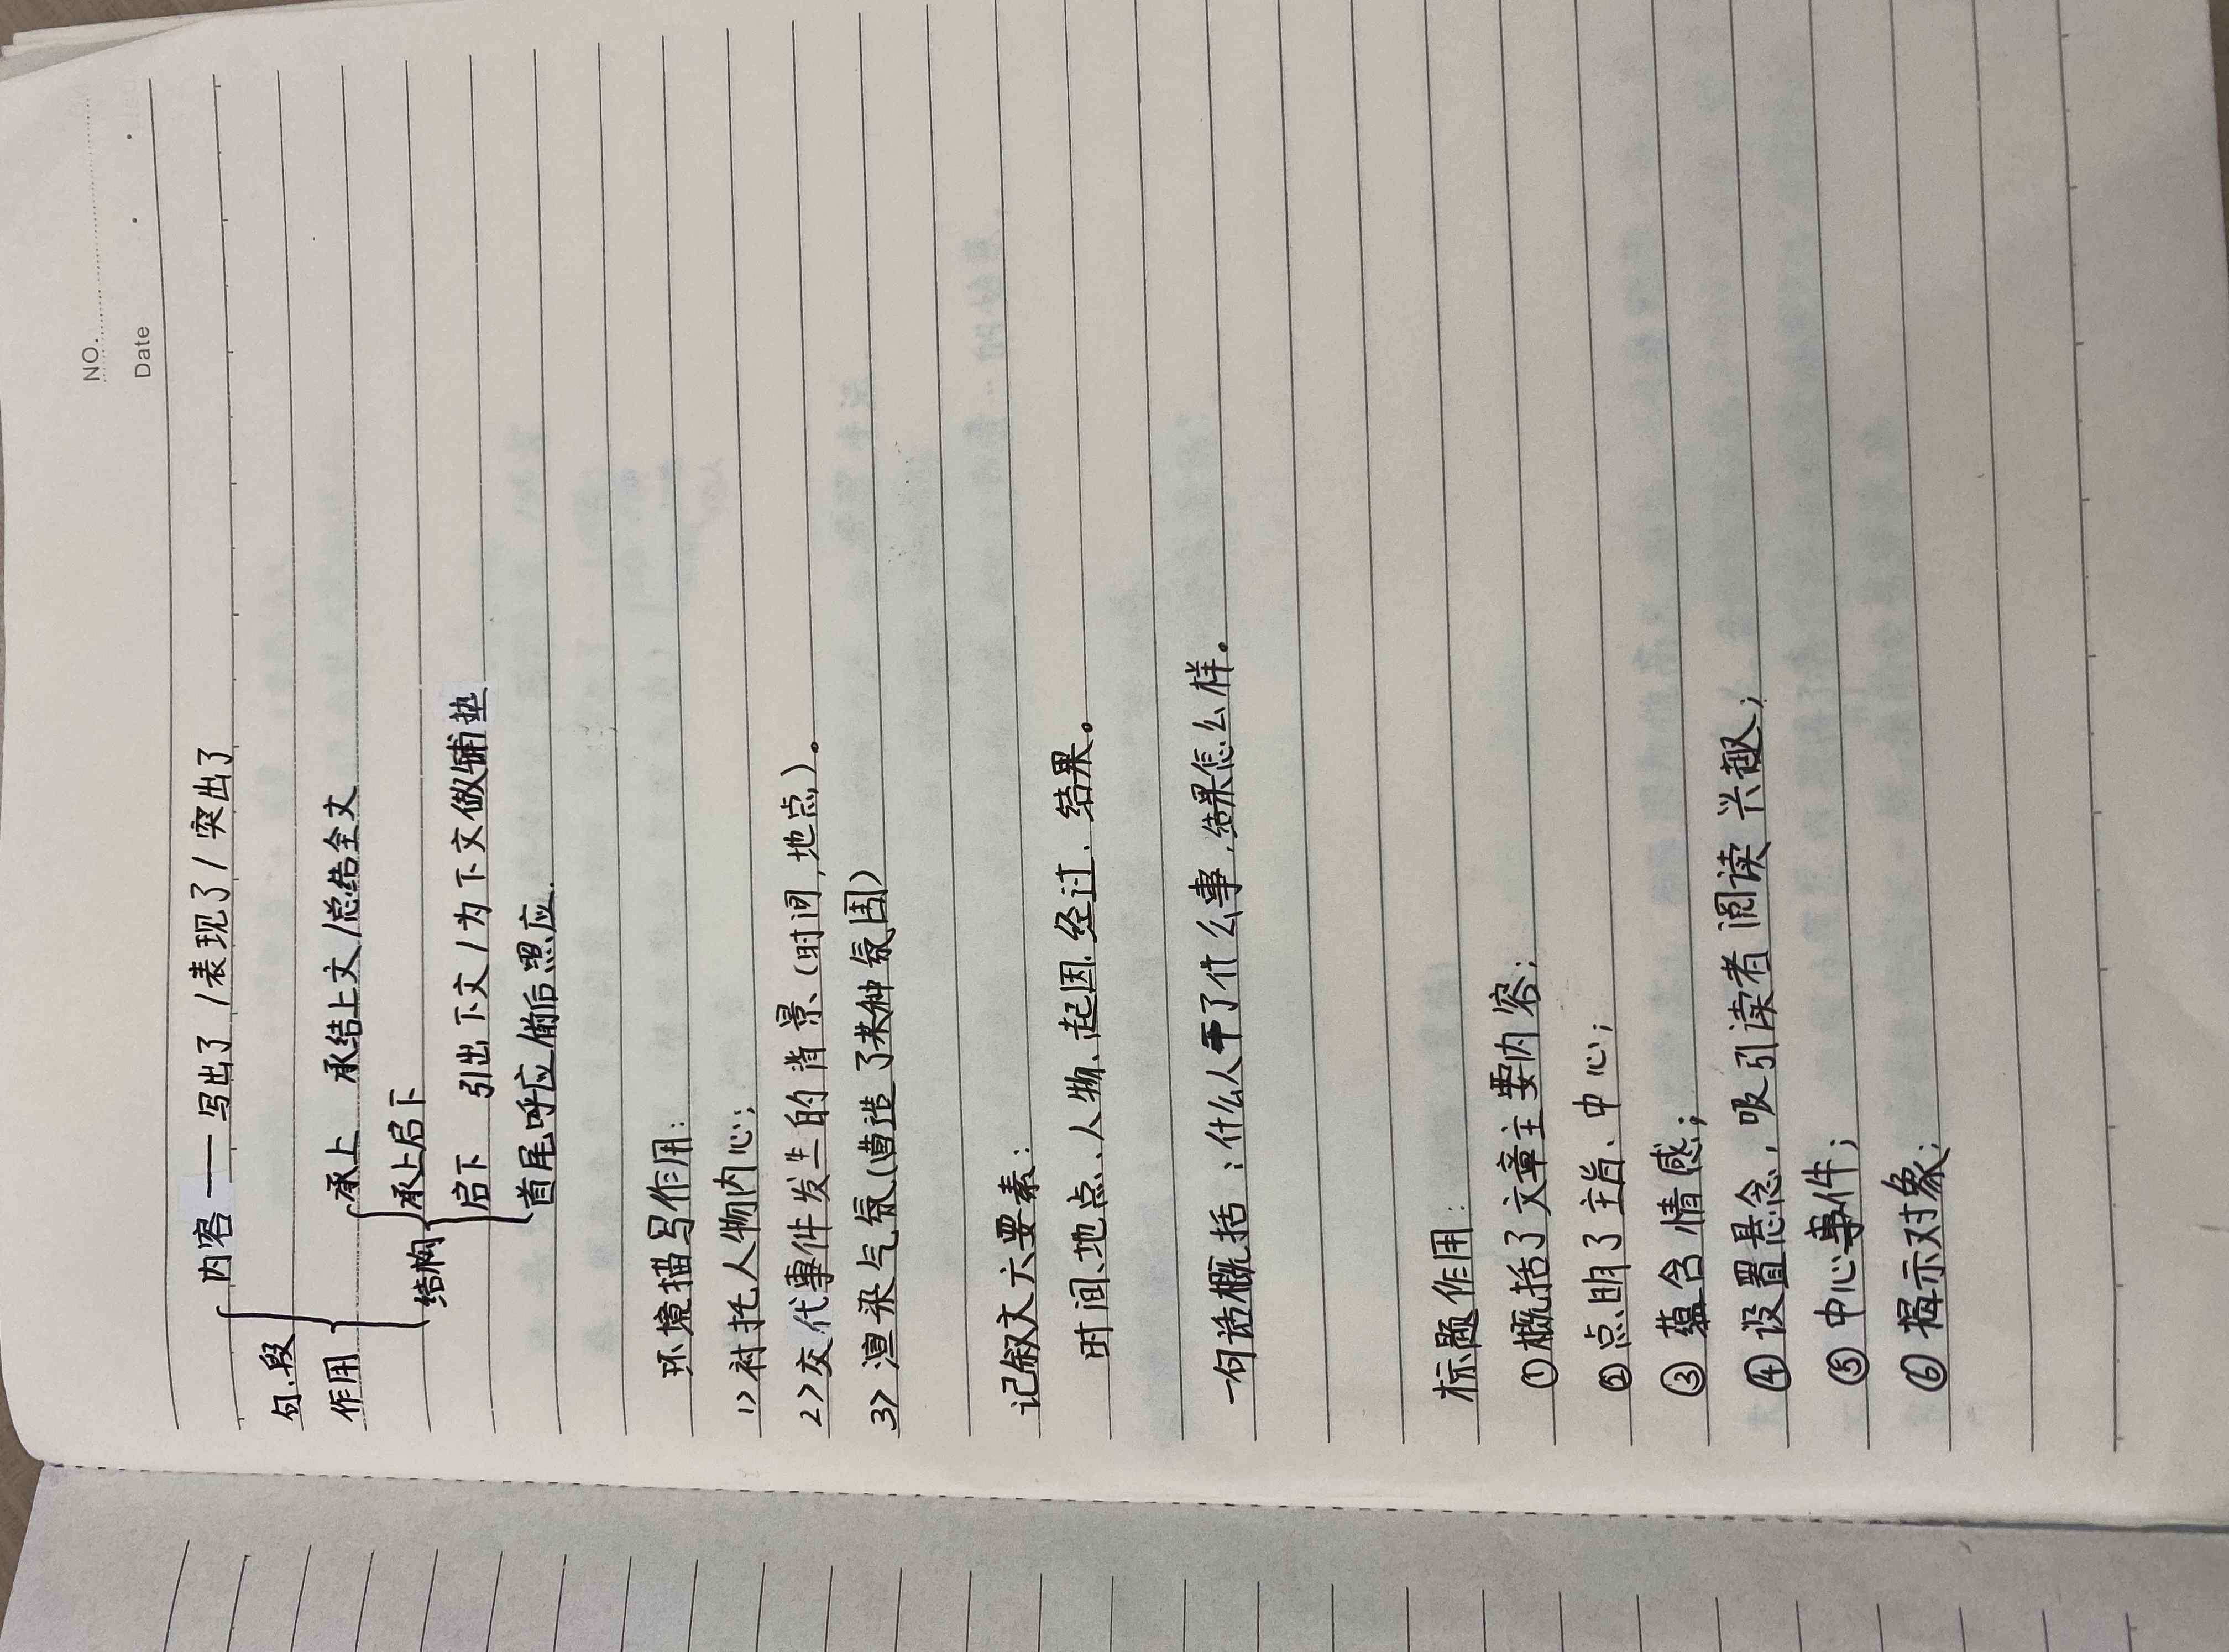 NO.
Date
内容 —— 写出了 / 表现了 / 突出了
句、段
作用
承上 承结上文 / 总结全文
结构 承上启下
启下 引出下文 / 为下文做铺垫
首尾呼应 前后照应.
环境描写作用:
1> 衬托人物内心;
2> 交代事件发生的背景 (时间, 地点)。
3> 渲染气氛 (营造了某种氛围)
记叙文六要素:
时间、地点、人物、起因、经过、结果。
一句话概括: 什么人干了什么事, 结果怎么样。
标题作用:
①概括了文章主要内容;
②点明了主旨、中心;
③蕴含情感;
④设置悬念, 吸引读者阅读兴趣;
⑤中心事件;
⑥揭示对象;